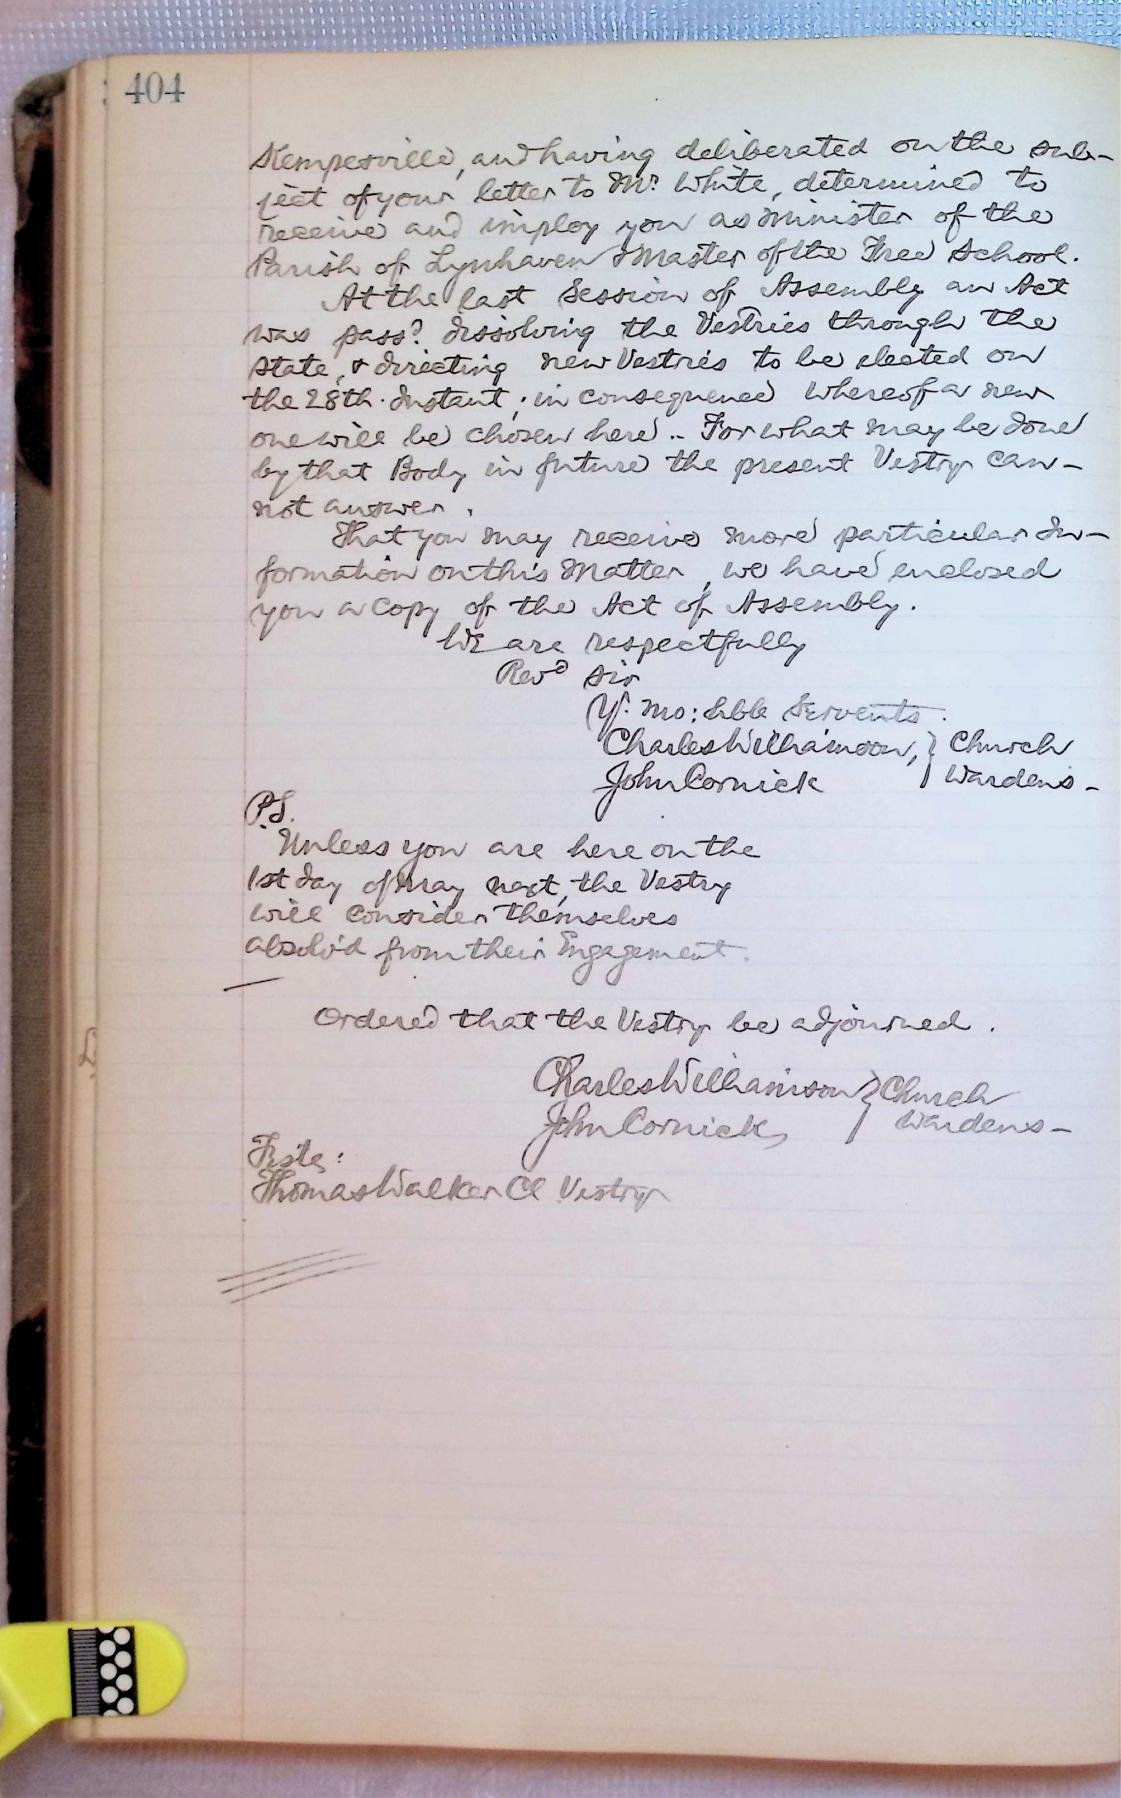 404
Kempesville, and having deliberated on the sub-
ject of your letter to Mr. White, determined to
receive and imploy you as Minister of the
Parish of Lynhaven & Master of the Free School.
At the last Session of Assembly an Act
was pass'd dissolving the Vestries through the
State, & directing new Vestries to be elected on
the 28th. Instant; in consequence whereof a new
one will be chosen here.. For what may be done
by that Body in future the present Vestry can-
not answer.
That you may receive more particular In-
formation on this Matter, we have enclosed
you a Copy of the Act of Assembly.
We are respectfully
Revd Sir
Yr. mo: hble Servents.
Charles Williamson, } Church
John Cornick } Wardens-
P.S.
Unless you are here on the
1st day of May next, the Vestry
will consider themselves
absolv'd from their Engagement.
Ordered that the Vestry be adjourned.
Charles Williamson } Church
John Cornick, } Wardens-
Teste:
Thomas Walker Cl Vestry